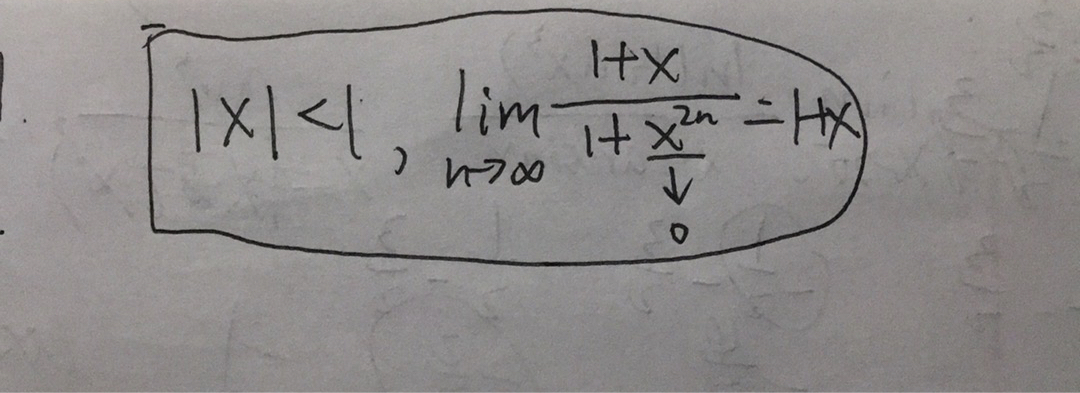 |x|<1, lim n→∞ (1+x)/(1+x^{2n}) = 1+x
↓
0